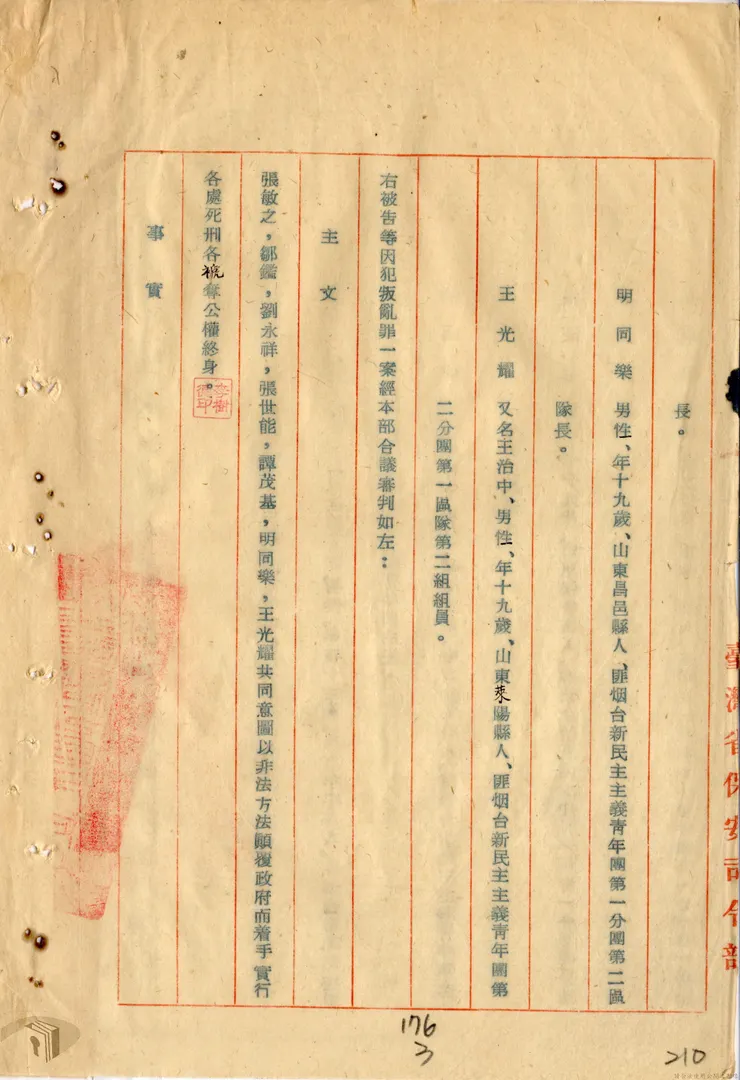 長。
明同樂 男性、年十九歲、山東昌邑縣人、匪烟台新民主主義青年團第一分團第二區
隊長。
王光耀 又名王治中、男性、年十九歲、山東萊陽縣人、匪烟台新民主主義青年團第
二分團第一區隊第二組組員。
右被告等因犯叛亂罪一案經本部合議審判如左：
主文
張敏之，鄒鑑，劉永祥，張世能，譚茂基，明同樂，王光耀共同意圖以非法方法顛覆政府而着手實行
各處死刑各褫奪公權終身。
事實
臺灣省保安司令部
176
3
210